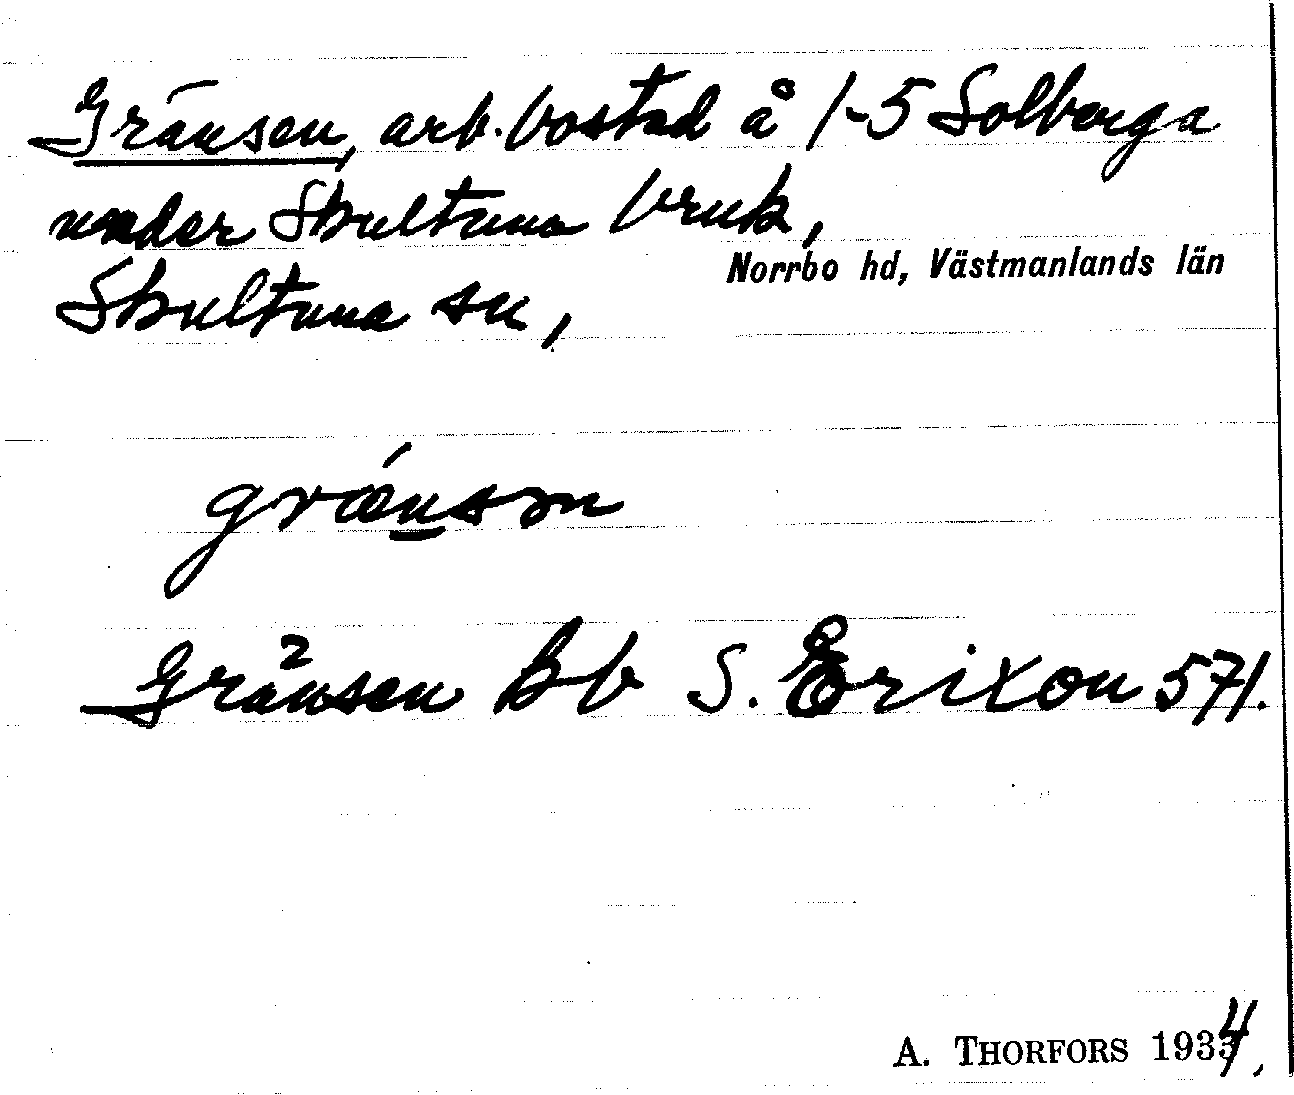 Gränsen, arb. bostad å 1-5 Solberga
under Skultuna bruk,
Norrbo hd, Västmanlands län
Skultuna sn,
grǽnsn
Gränsen Bb S. Erixon 571.
A. THORFORS 1934,